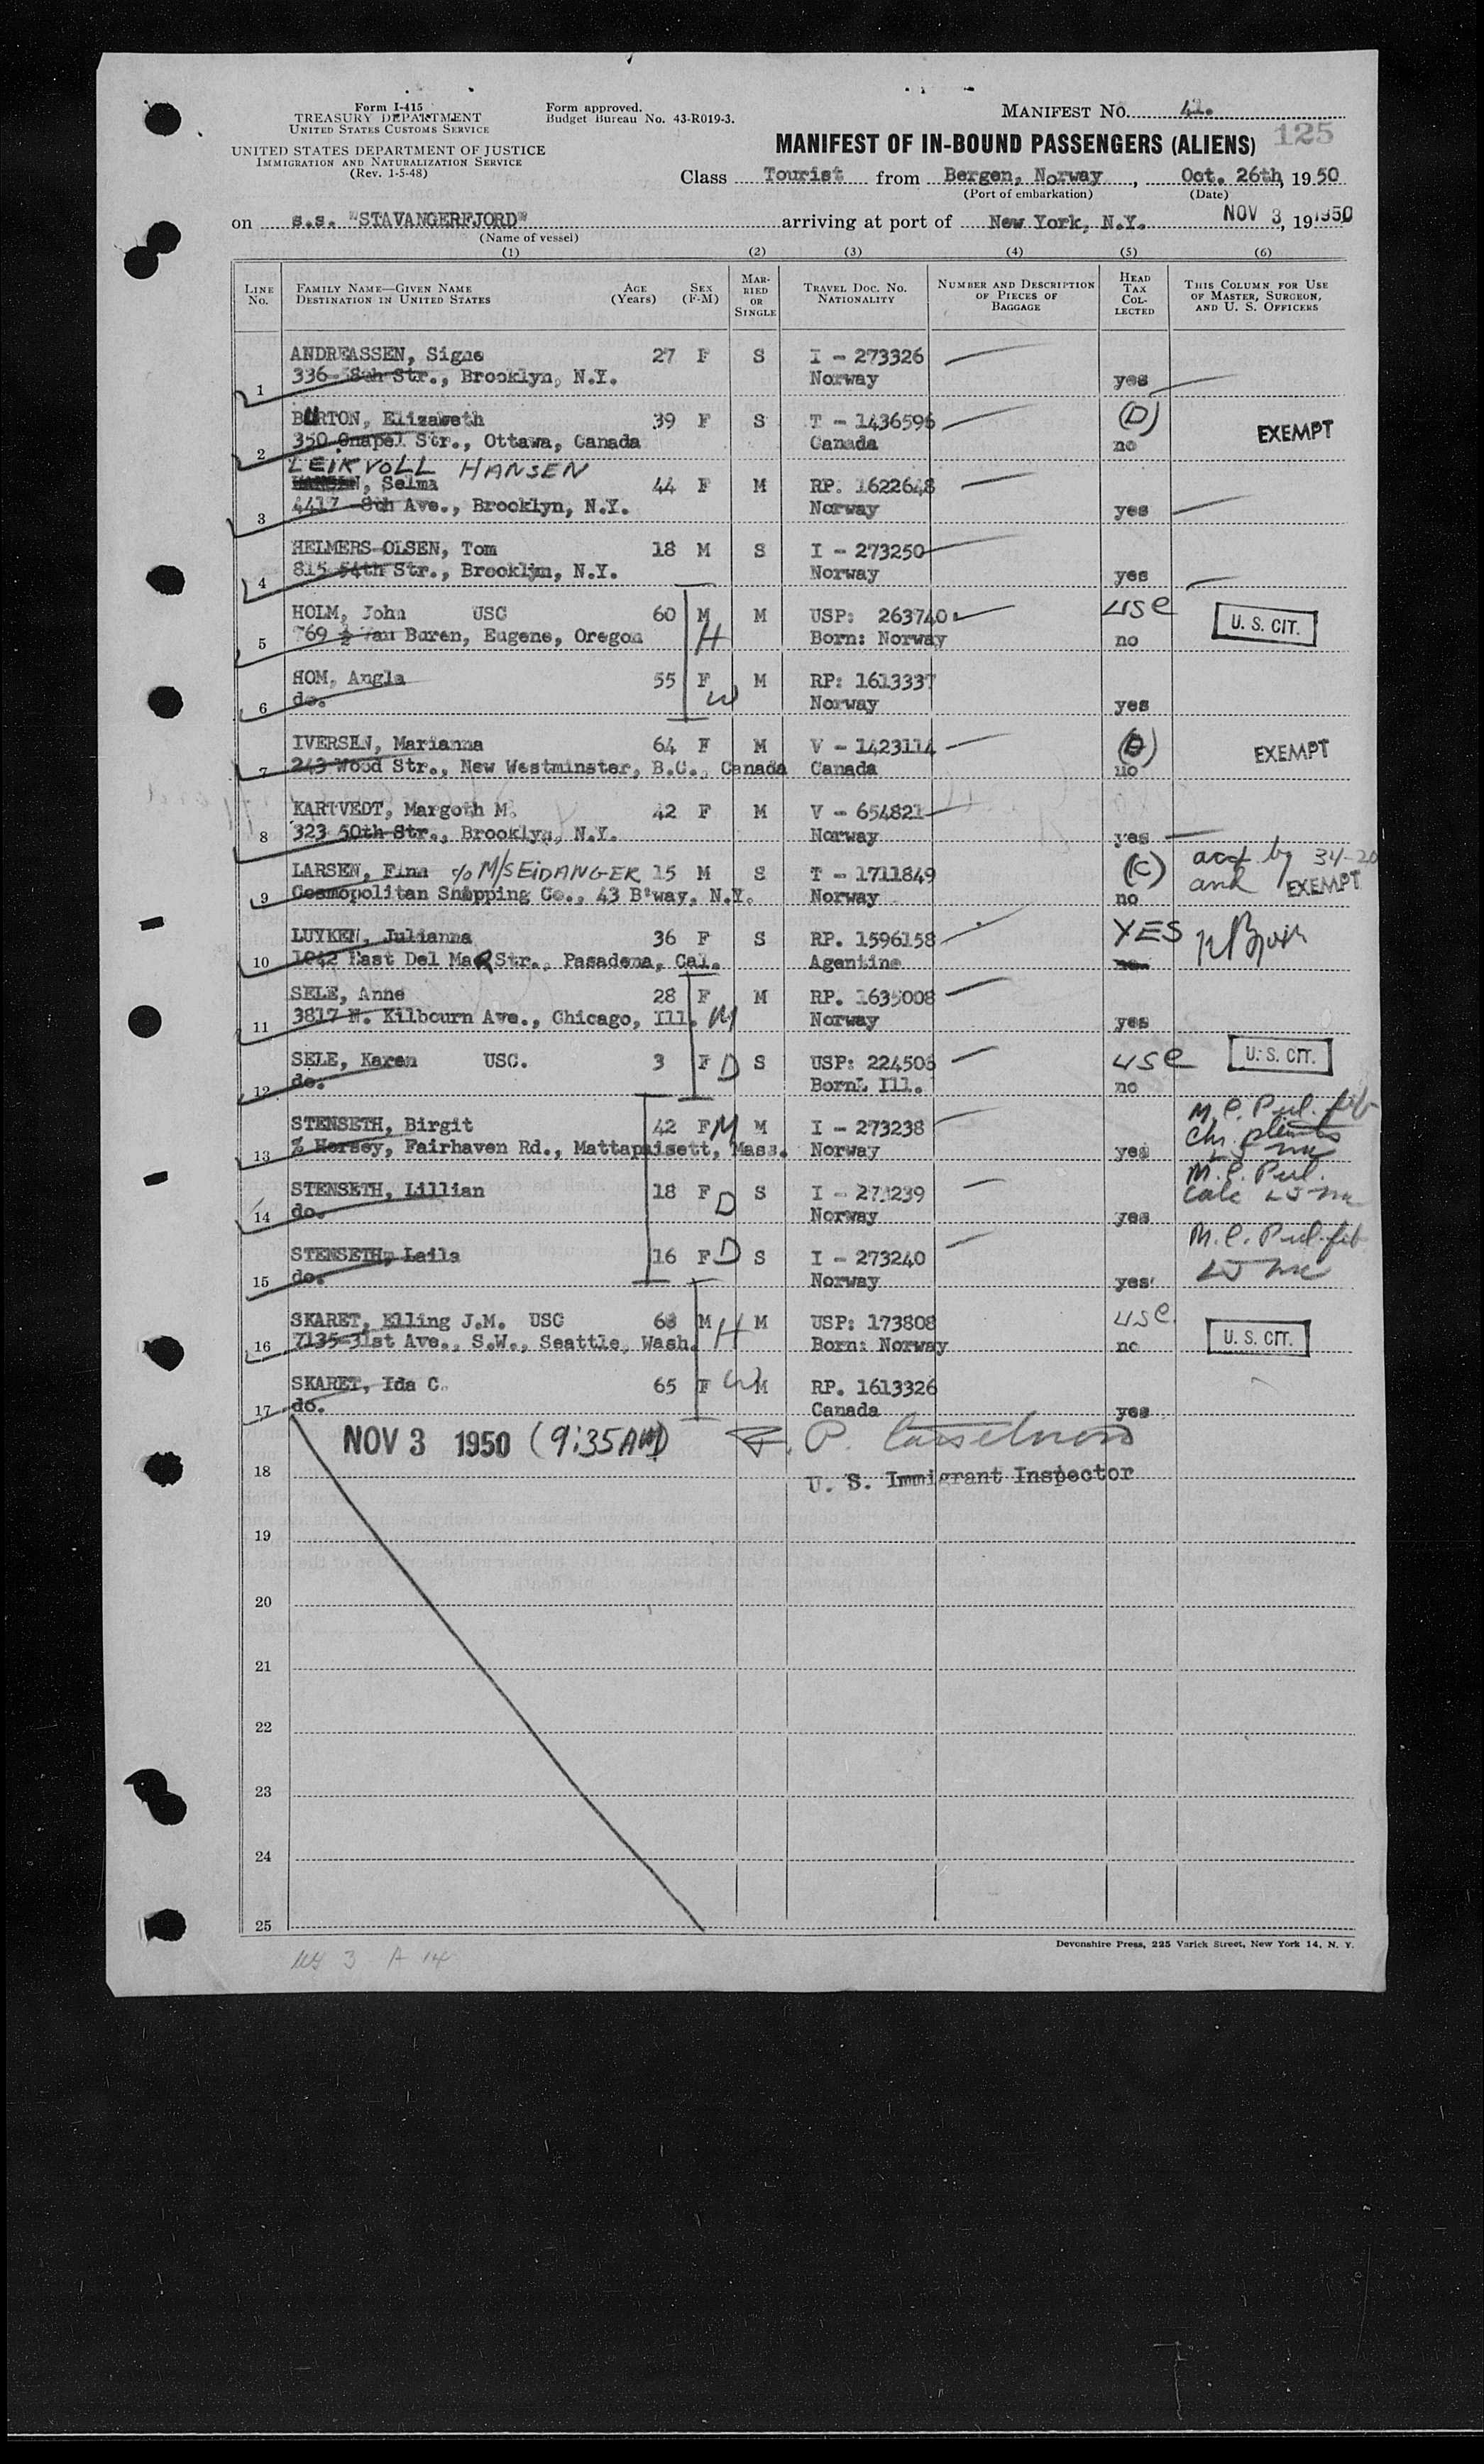 Form I-415
TREASURY DEPARTMENT
UNITED STATES CUSTOMS SERVICE
UNITED STATES DEPARTMENT OF JUSTICE
IMMIGRATION AND NATURALIZATION SERVICE
(Rev. 1-5-48)
Form approved.
Budget Bureau No. 43-R019-3.
MANIFEST NO. 4.
MANIFEST OF IN-BOUND PASSENGERS (ALIENS) 125
Class Tourist from Bergen, Norway, Oct. 26th, 1950
(Port of embarkation) (Date)
on s.s. "STAVANGERFJORD" arriving at port of New York, N.Y. NOV 3, 19 1950
(Name of vessel)
(1) (2) (3) (4) (5) (6)
LINE No. FAMILY NAME—GIVEN NAME DESTINATION IN UNITED STATES AGE (Years) SEX (F-M) MARRIED OR SINGLE TRAVEL DOC. NO. NATIONALITY NUMBER AND DESCRIPTION OF PIECES OF BAGGAGE HEAD TAX COLLECTED THIS COLUMN FOR USE OF MASTER, SURGEON, AND U. S. OFFICERS
ANDREASSEN, Signe 27 F S I - 273326
1 336- 8th Str., Brooklyn, N.Y. Norway yes
BURTON, Elizabeth 39 F S T - 1436596 (D) EXEMPT
2 350 Chapel Str., Ottawa, Canada Canada no
LEIKVOLL HANSEN
HANSEN, Selma 44 F M RP. 1622648
3 4417 8th Ave., Brooklyn, N.Y. Norway yes
HELMERS-OLSEN, Tom 18 M S I - 273250
4 815 54th Str., Brooklyn, N.Y. Norway yes
HOLM, John USC 60 M H M USP: 263740 USC U. S. CIT.
5 769 ½ Van Buren, Eugene, Oregon Born: Norway no
HOM, Angla 55 F W M RP: 1613337
6 do. Norway yes
IVERSEN, Marianna 64 F M V - 1423114 (D) EXEMPT
7 243 Wood Str., New Westminster, B.C., Canada Canada no
KARTVEDT, Margoth M. 42 F M V - 654821
8 323 50th Str., Brooklyn, N.Y. Norway yes
LARSEN, Finn c/o M/S EIDANGER 15 M S T - 1711849 (C) acc by 34-20
9 Cosmopolitan Shipping Co., 43 B'way, N.Y. Norway no and EXEMPT
LUYKEN, Julianna 36 F S RP. 1596158 YES
10 1042 East Del MaR Str., Pasadena, Cal. Agentine
SELE, Anne 28 F M M RP. 1635008
11 3817 N. Kilbourn Ave., Chicago, Ill. Norway yes
SELE, Karen USC. 3 F D S USP: 224506 USC U. S. CIT.
12 do. Born: Ill. no
STENSETH, Birgit 42 F M M I - 273238 M.C. Pul. fib
13 % Hersey, Fairhaven Rd., Mattapaisett, Mass. Norway yes
STENSETH, Lillian 18 F D S I - 273239 M.C. Pul.
14 do. Norway yes
STENSETH, Laila 16 F D S I - 273240 M.C. Pul. fib
15 do. Norway yes
SKARET, Elling J.M. USC 68 M H M USP: 173808 USC. U. S. CIT.
16 7135-31st Ave., S.W., Seattle, Wash. Born: Norway no
SKARET, Ida C. 65 F W M RP. 1613326
17 do. Canada yes
NOV 3 1950 (9:35 AM)
18 U. S. Immigrant Inspector
19
20
21
22
23
24
25
Devonshire Press, 225 Varick Street, New York 14, N. Y.